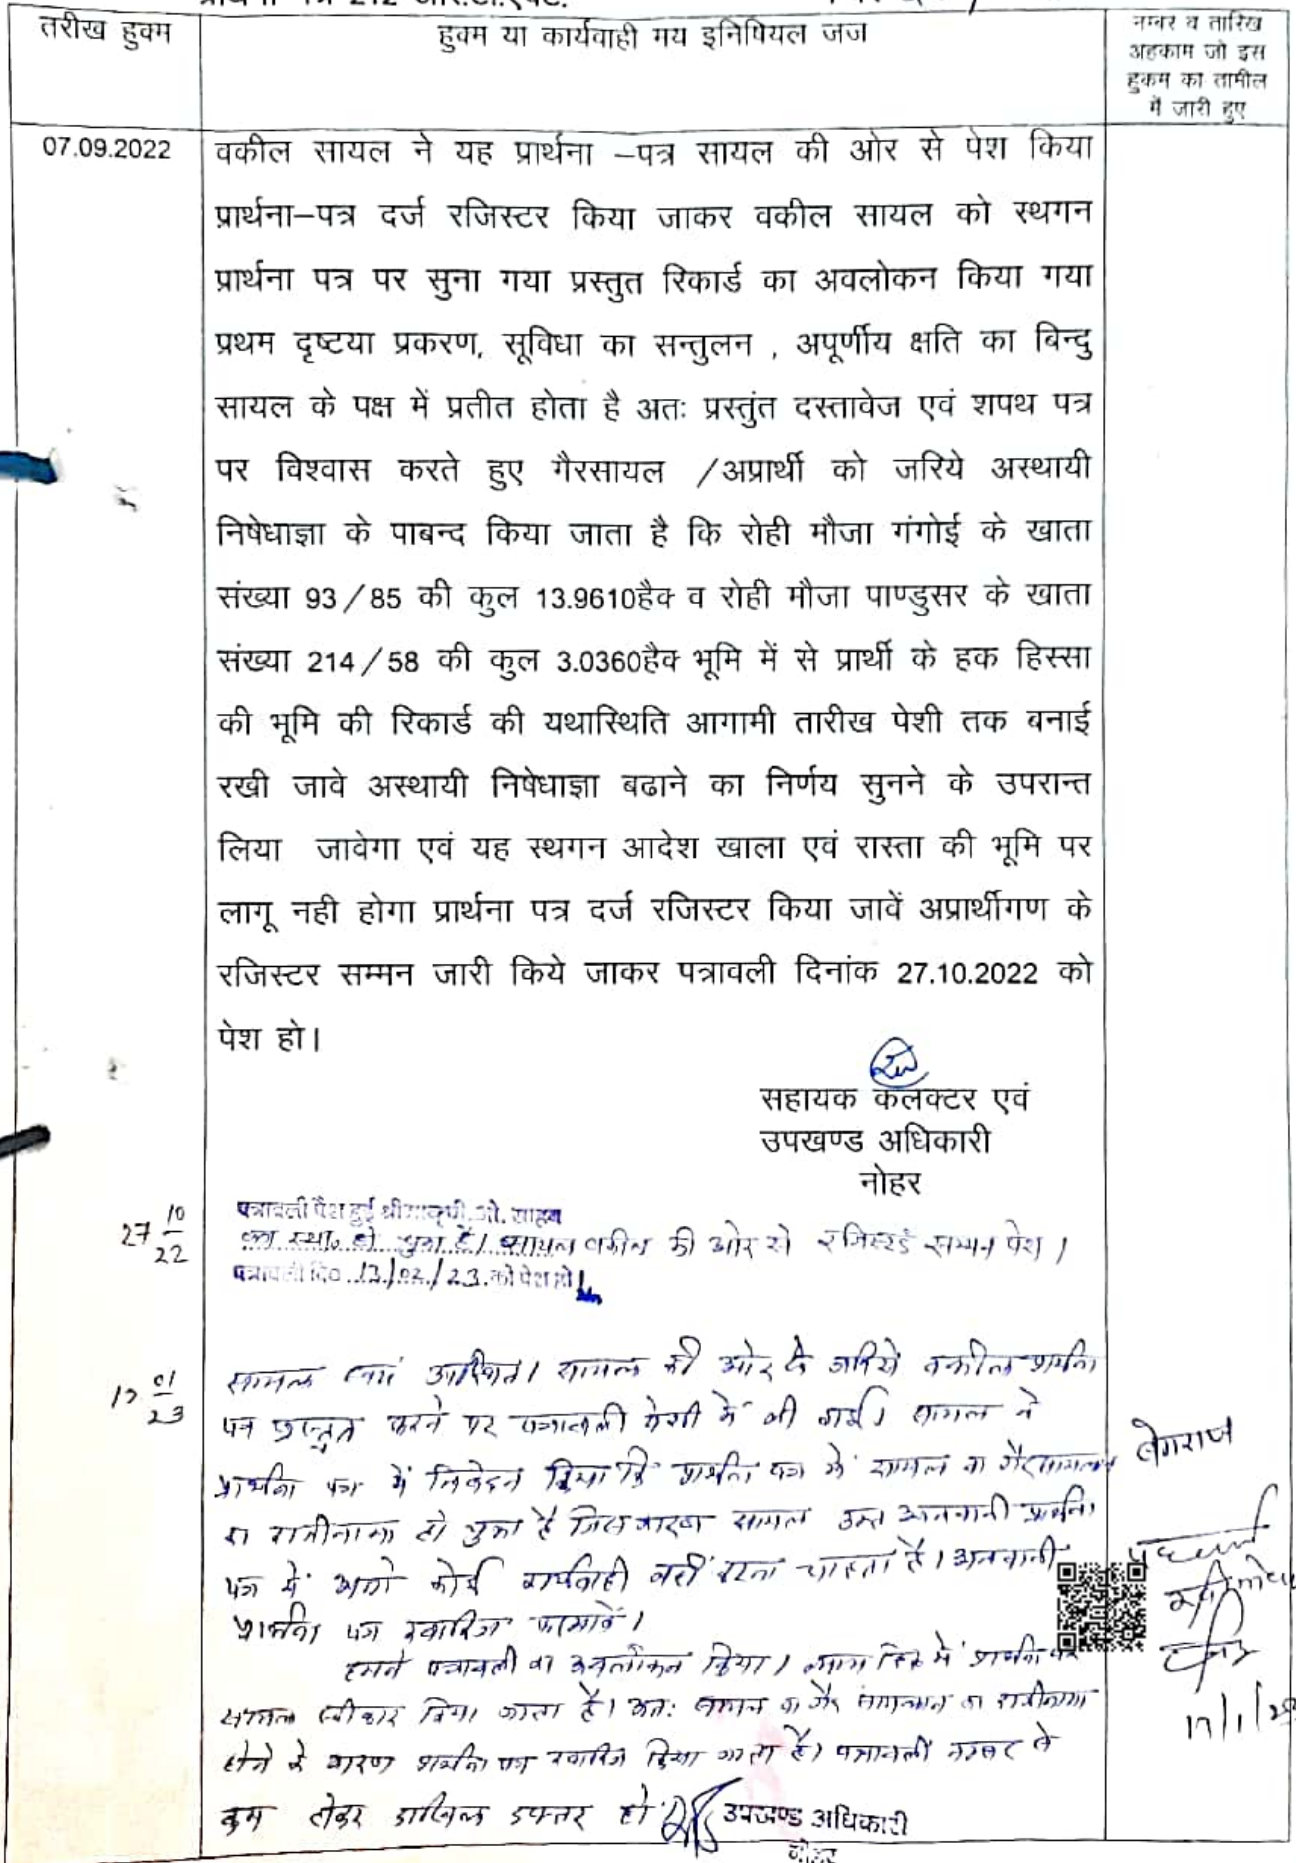 तरीख हुक्म
हुक्म या कार्यवाही मय इनिषियल जज
नम्बर व तारिख
अहकाम जो इस
हुकम का तामील
में जारी हुए
07.09.2022
वकील सायल ने यह प्रार्थना –पत्र सायल की ओर से पेश किया
प्रार्थना–पत्र दर्ज रजिस्टर किया जाकर वकील सायल को स्थगन
प्रार्थना पत्र पर सुना गया प्रस्तुत रिकार्ड का अवलोकन किया गया
प्रथम दृष्टया प्रकरण, सूविधा का सन्तुलन , अपूर्णीय क्षति का बिन्दु
सायल के पक्ष में प्रतीत होता है अतः प्रस्तुंत दस्तावेज एवं शपथ पत्र
पर विश्वास करते हुए गैरसायल /अप्रार्थी को जरिये अस्थायी
निषेधाज्ञा के पाबन्द किया जाता है कि रोही मौजा गंगोई के खाता
संख्या 93/85 की कुल 13.9610हैक व रोही मौजा पाण्डुसर के खाता
संख्या 214/58 की कुल 3.0360हैक भूमि में से प्रार्थी के हक हिस्सा
की भूमि की रिकार्ड की यथास्थिति आगामी तारीख पेशी तक बनाई
रखी जावे अस्थायी निषेधाज्ञा बढाने का निर्णय सुनने के उपरान्त
लिया जावेगा एवं यह स्थगन आदेश खाला एवं रास्ता की भूमि पर
लागू नही होगा प्रार्थना पत्र दर्ज रजिस्टर किया जावें अप्रार्थीगण के
रजिस्टर सम्मन जारी किये जाकर पत्रावली दिनांक 27.10.2022 को
पेश हो।
सहायक कलक्टर एवं
उपखण्ड अधिकारी
नोहर
27 10/22
पत्रावली पेश हुई श्रीमान् पी. ओ. साहब
का स्था. हो चुका है। सायल वकील की ओर से रजिस्टर्ड सम्मन पेश।
पत्रावली दि0 13/02/23 को पेश हो
01/23
सायल आस्थित। सायल की ओर से जरिये वकील प्रार्थना
पत्र प्रस्तुत करने पर पत्रावली पेशी में ली गई। सायल ने
प्रार्थना पत्र में निवेदन किया कि प्रार्थना पत्र में सायल व गैरसायलान
का राजीनामा हो चुका है जिस कारण सायल उक्त प्रार्थना
पत्र में आगे कोई कार्यवाही नहीं करना चाहता है।
प्रार्थना पत्र खारिज फरमावें।
हमने पत्रावली का अवलोकन किया। प्रार्थना पत्र
सायल स्वीकार किया जाता है। अतः सायल व गैर सायलान का राजीनामा
होने के कारण प्रार्थना पत्र खारिज किया जाता है। पत्रावली नम्बर से
कम होकर दाखिल दफ्तर हो
बेगराज
उपखण्ड अधिकारी
नोहर